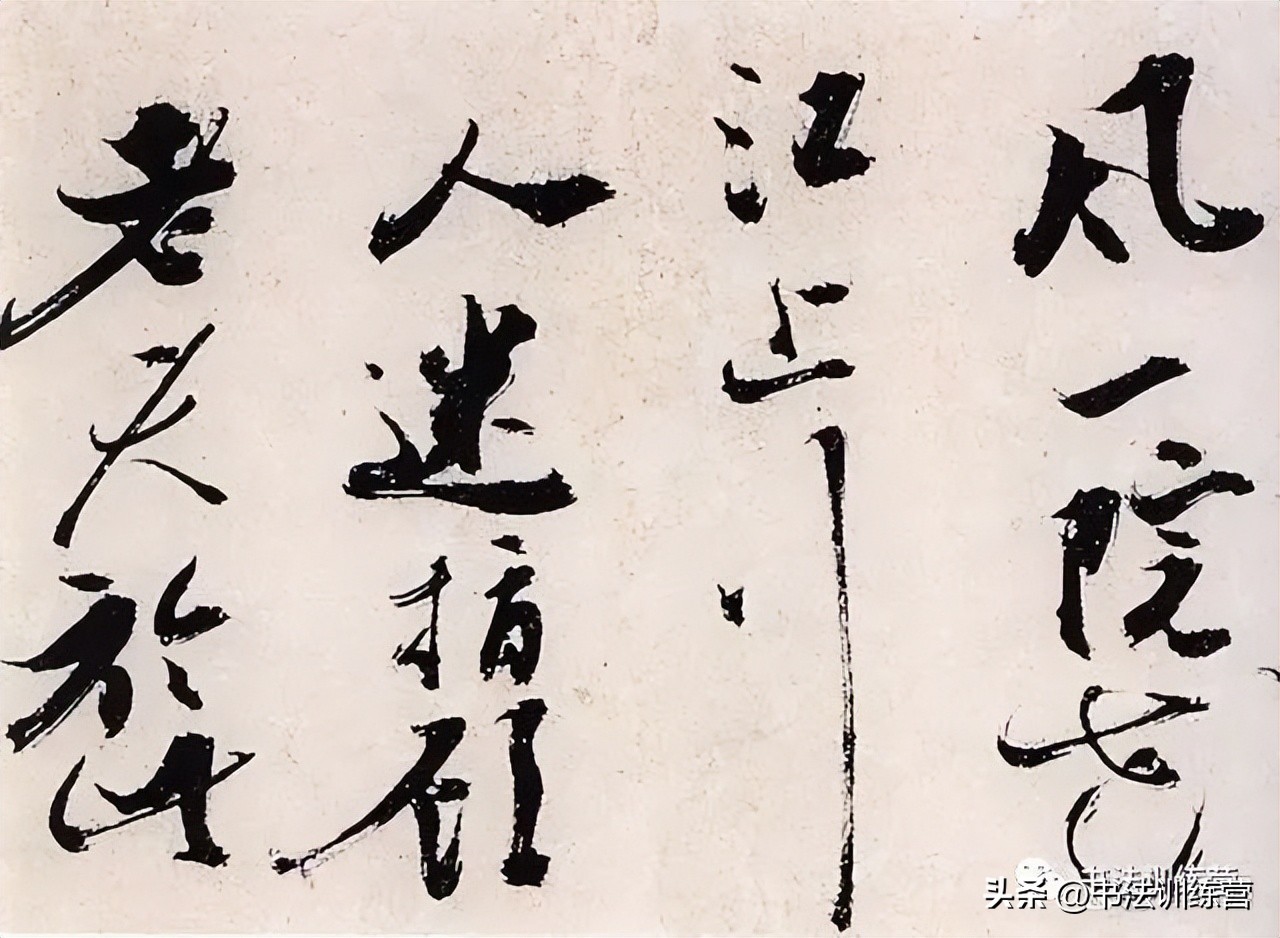 風一院
江上
人迷指顧
老夫於此
头条 @书法训练营
书法训练营